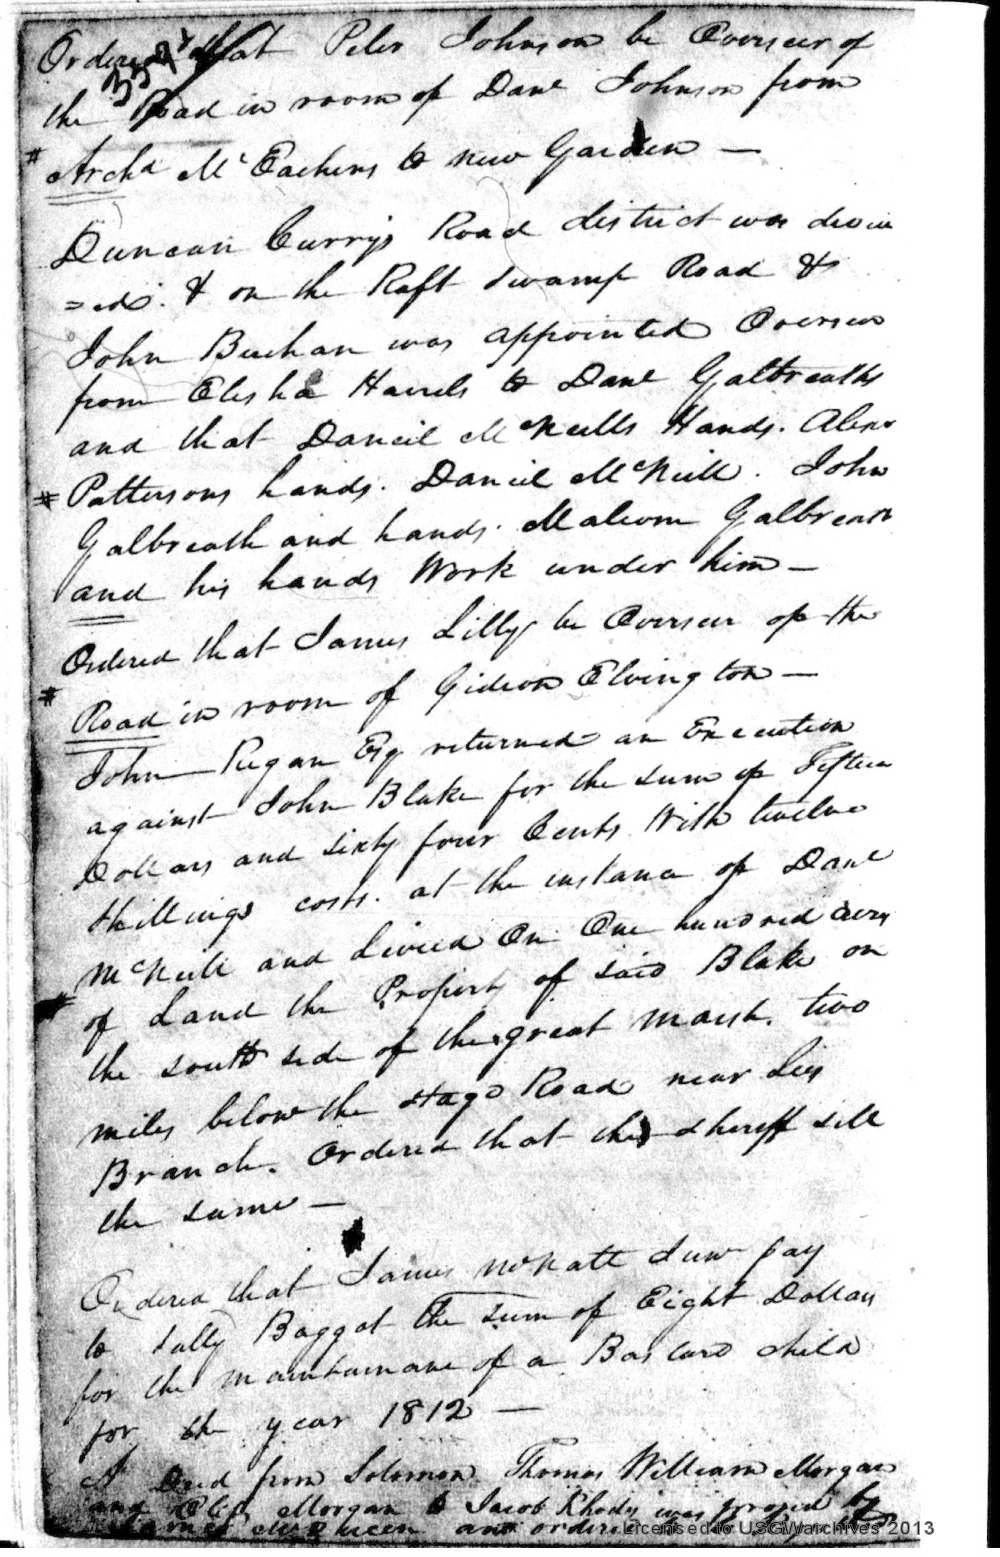 Ordered that Peter Johnson be Overseer of
the Road in room of Danl Johnson from
# Archd McEacherns to new Garden —
Duncan Currys Road district was
=ed. & on the Raft Swamp Road &
John Buchan was appointed Overseer
from Elisha Harrels to Danl Galbreaths
and that Daneil McNeills Hands. Alexr
# Pattersons hands. Daniel McNeill. John
Galbreath and hands. Malcom Galbreath
and his hands Work under him —
Ordered that James Lilly be Overseer of the
# Road in room of Gideon Elvington —
John Regan Esq returned an Execution
against John Blake for the sum of Fifteen
Dollars and sixty four Cents With twelve
shillings costs. at the instance of Danl
McNeill and Livied On One hundred acres
# of Land the Property of said Blake on
the south side of the great marsh. two
miles below the Stage Road near
Branch. Ordered that the Sheriff sell
the same —
Ordered that James McNatt Junr pay
to Sally Baggot the sum of Eight Dollars
for the maintainane of a Bastard child
for the year 1812 —
A Deed from Solomon Thomas William Morgan
and Morgan to Jacob Rhody was proved by
James McQueen and ordered to be
Licensed to USGWarchives 2013